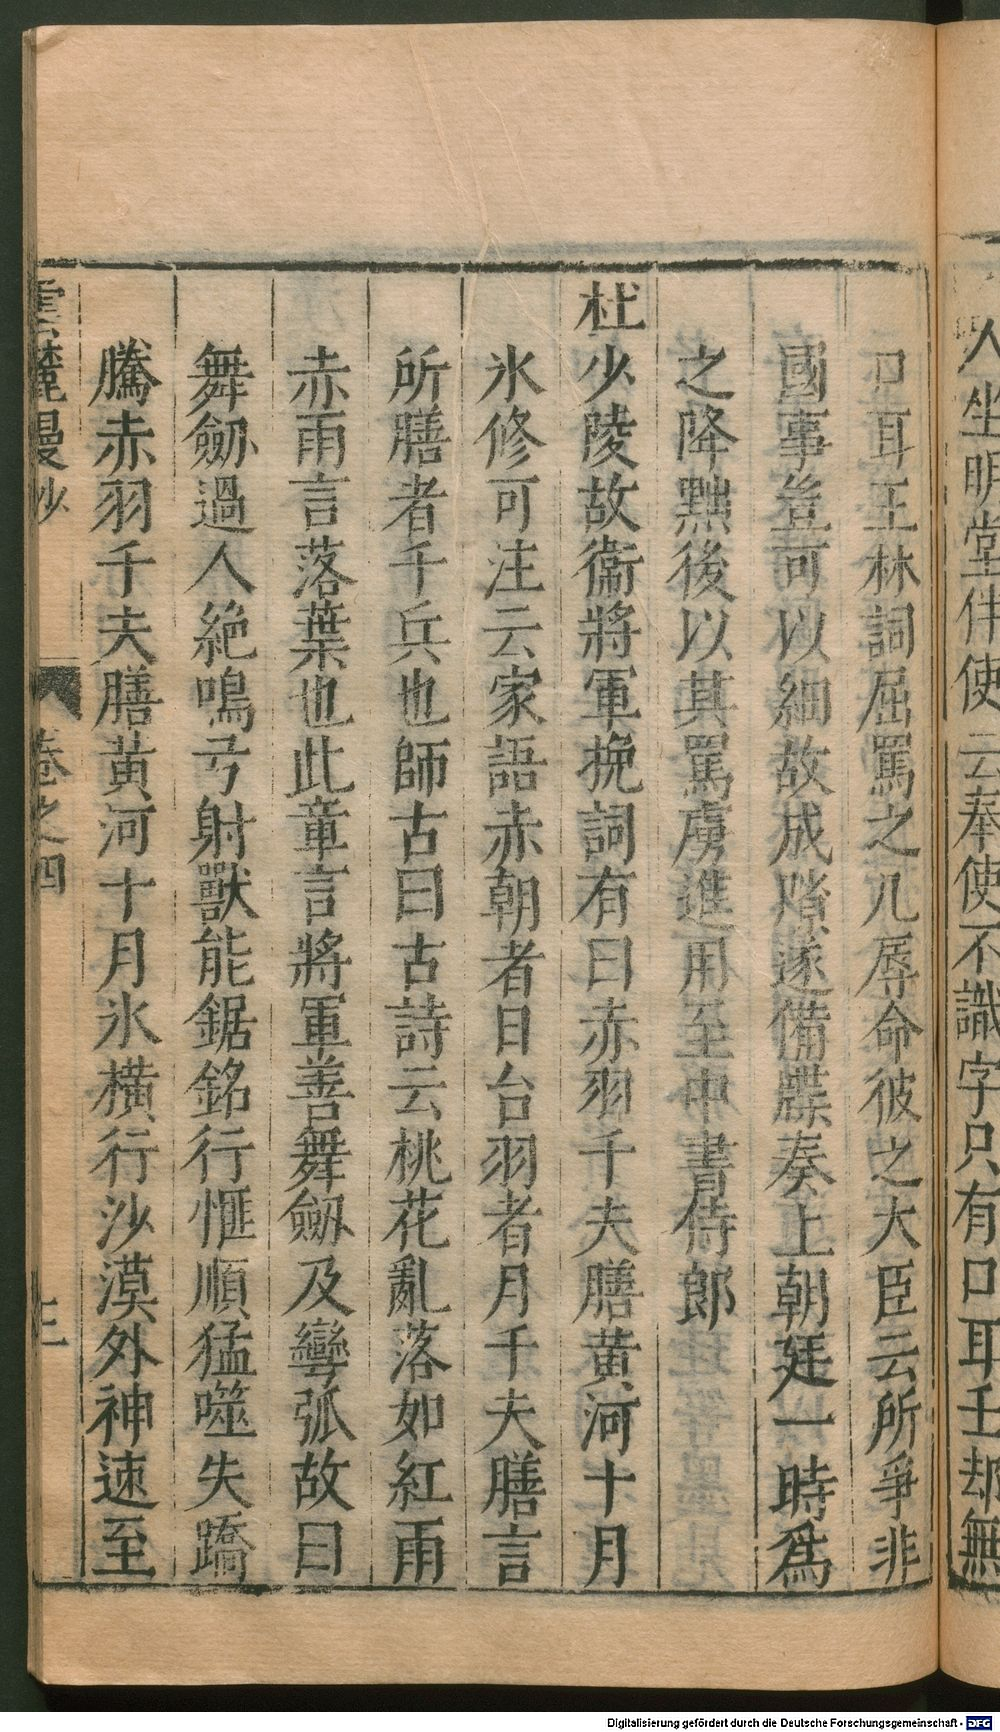 人坐明堂伴使云奉使不識字只有口耳王却無
口耳王林詞屈罵之几辱命彼之大臣云所爭非
國事豈可以細故成隙遂備牒奏上朝廷一時爲
之降黜後以其罵虜進用至中書侍郎
杜少陵故衞將軍挽詞有曰赤羽千夫膳黃河十月
氷修可注云家語赤朝者日台羽者月千夫膳言
所膳者千兵也師古曰古詩云桃花亂落如紅雨
赤雨言落葉也此章言將軍善舞劔及彎弧故曰
舞劔過人絶鳴弓射獸能鋸銘行愜順猛噬失蹻
騰赤羽千夫膳黃河十月氷橫行沙漠外神速至
雲麓漫抄 卷之四 三
Digitalisierung gefördert durch die Deutsche Forschungsgemeinschaft - DFG